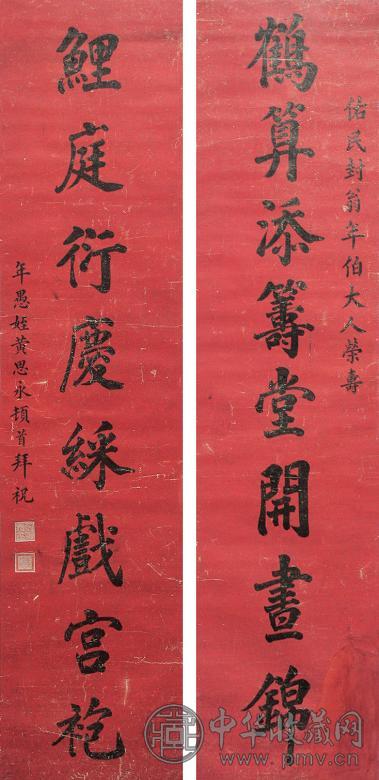 佑民封翁年伯大人榮壽
鶴算添籌堂開晝錦
鯉庭衍慶綵戲宫袍
年愚姪黃思永頓首拜祝
中华收藏网
www.pmv.cn